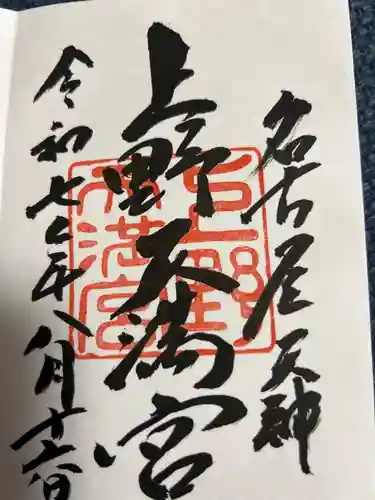 名古屋天神
上野天満宮
令和七年八月十六日
上野天満宮